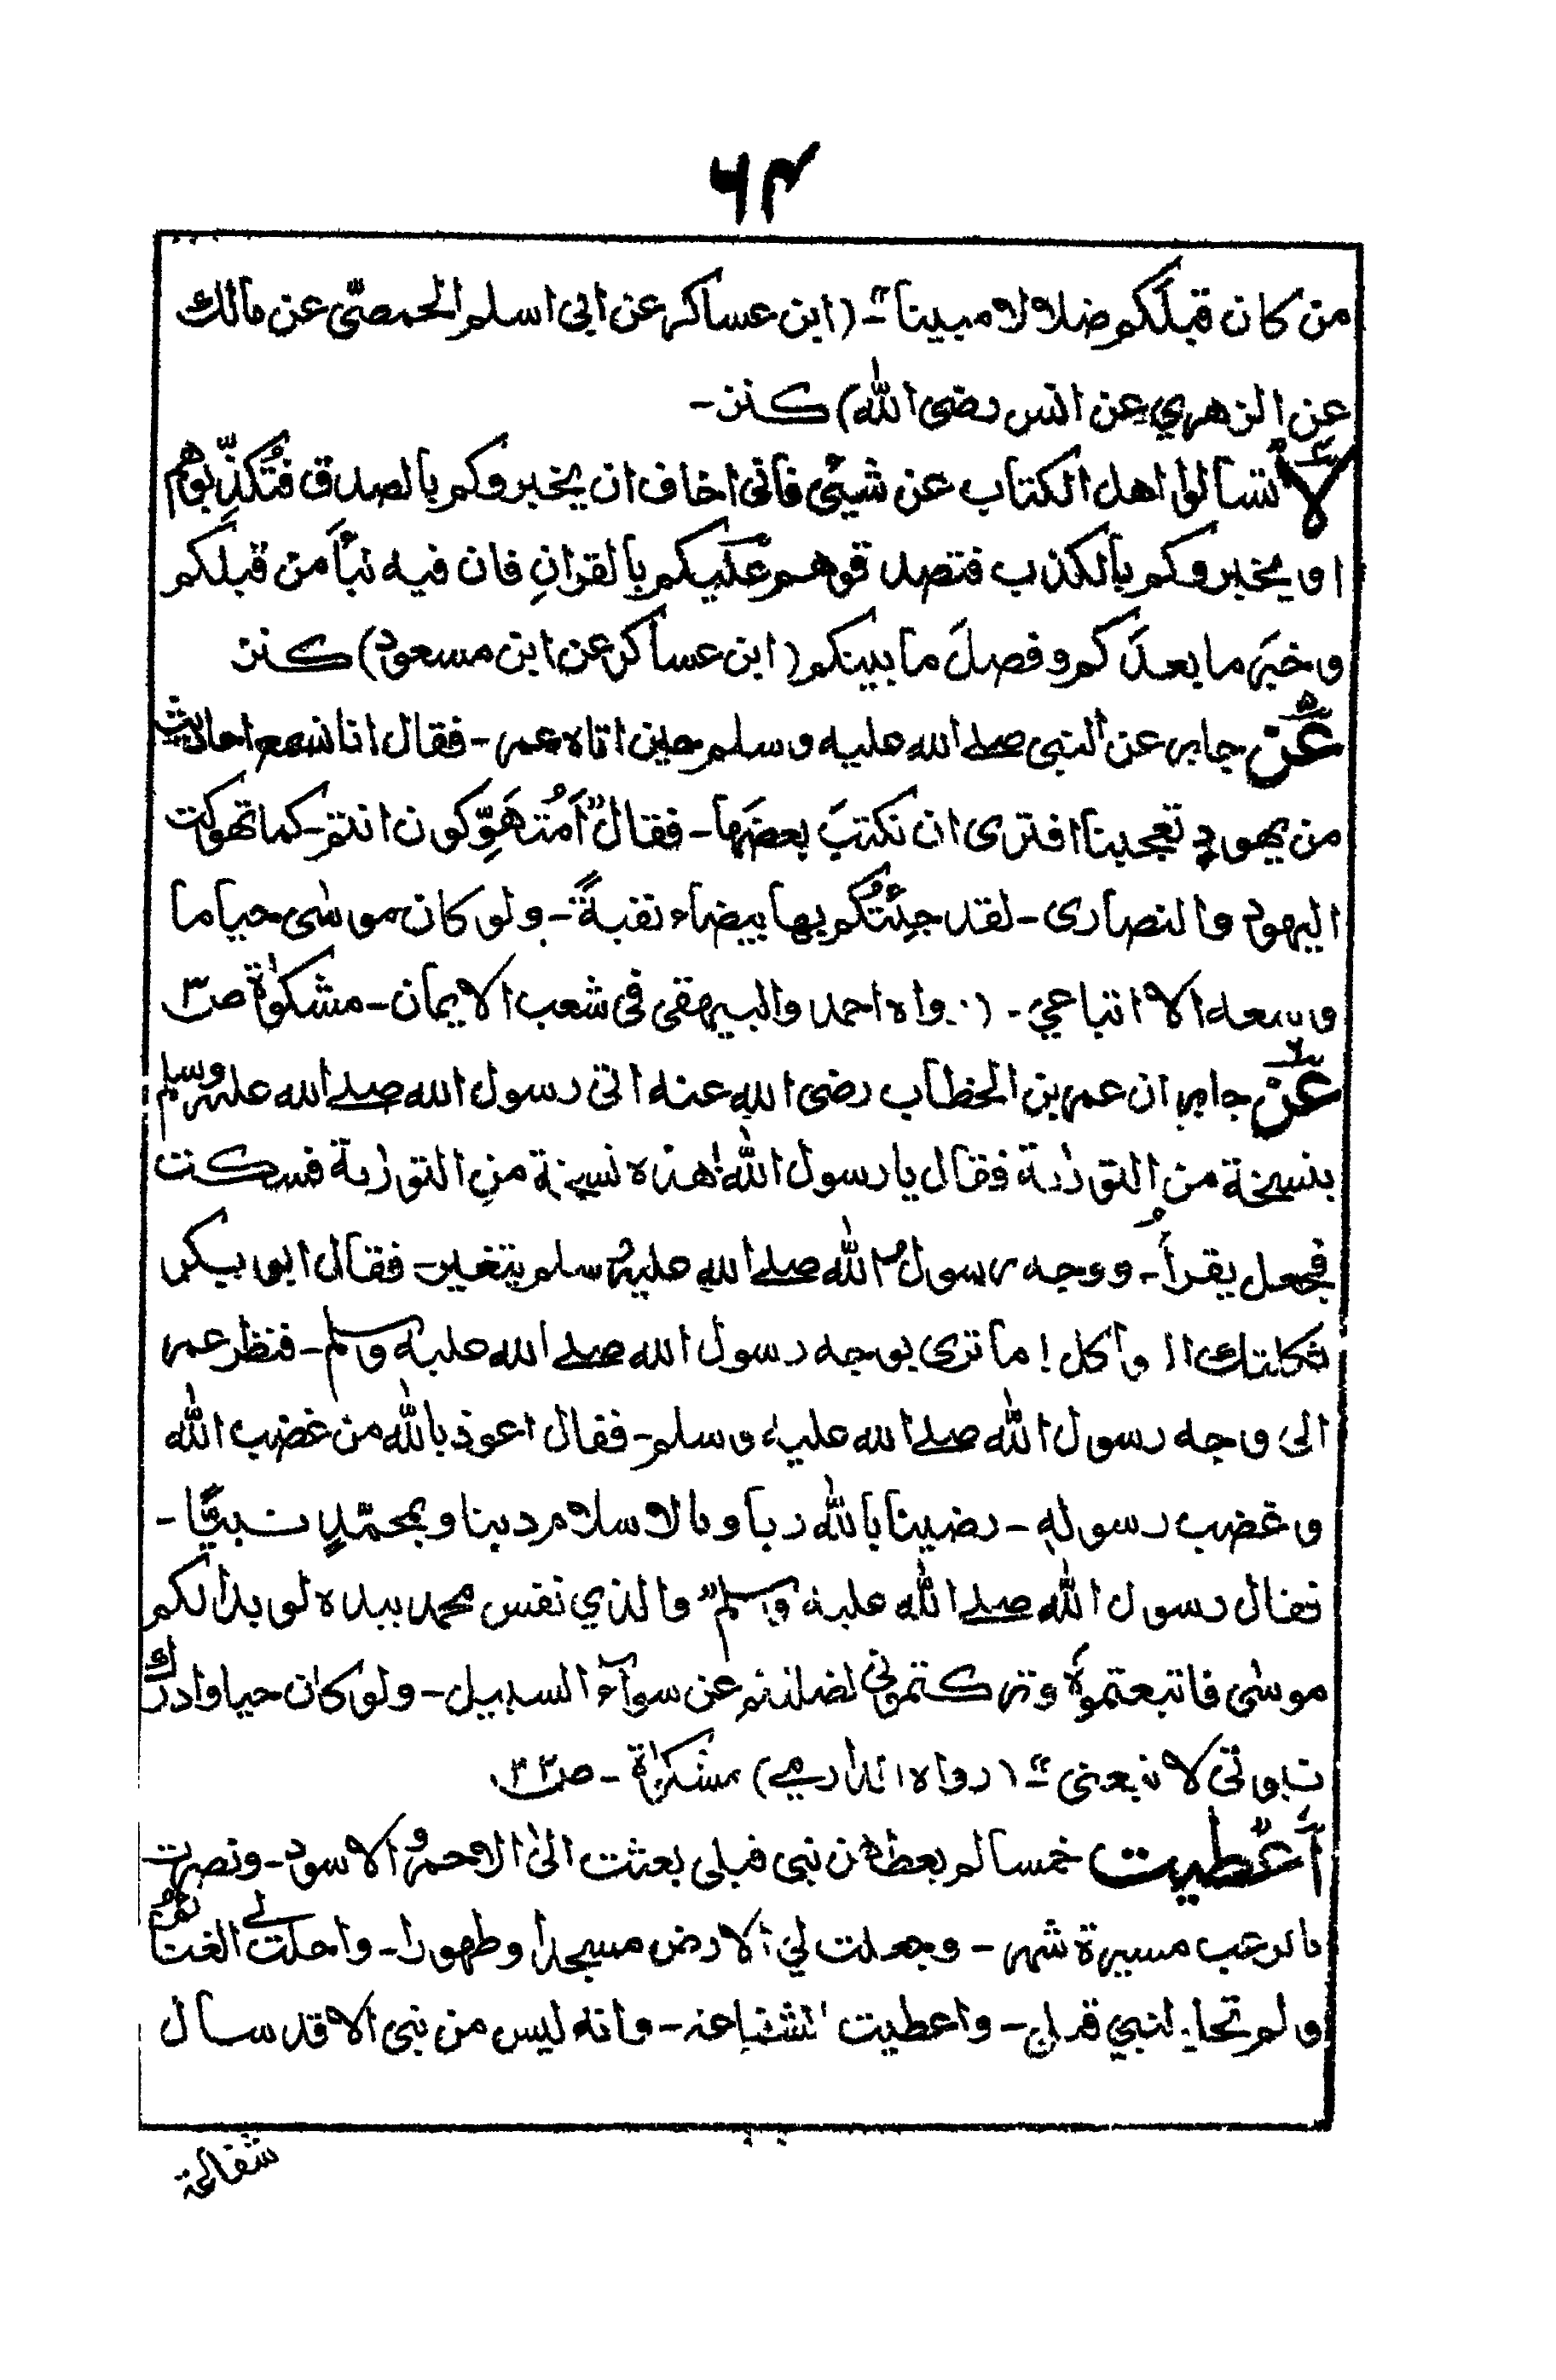 ۶۴
من كان قبلكم ضلالا مبينا"ـ (ابن عساكر عن ابى اسلم الحمصّى عن مالك
عن الزهري عن انس رضى الله) كنز-
۴ لا تسالوا اهل الكتاب عن شيئى فانى اخاف ان يخبروكم بالصدق فتُكذِّبوهم
او يخبروكم بالكذب فتصدقوهم عليكم بالقرانِ فان فيه نبأَ من قبلكم
وخبَر ما بعدَكم وفصلَ ما بينكم (ابن عساكر عن ابن مسعود) كنز
۵ عن جابر عن النبى صلے الله عليه وسلم حين اتاه عمر- فقال انا نسمع احاديث
من يهود تعجبنا افترى ان نكتبَ بعضَها- فقال "اَمُتهَوِّكون انتم- كما تهوكت
اليهود والنصارى- لقد جِئتُكم بها بيضاء نقيةً- ولو كان موسٰى حيا ما
وسعه الا اتباعي- (رواه احمد والبيهقى فى شعب الايمان- مشكوٰة صـ۳
۶ عن جابر ان عمر بن الخطاب رضى الله عنه اتى رسول الله صلے الله عليه وسلم
بنسخة من التورٰىة فقال يا رسول الله هٰذه نسخة من التورٰىة فسكت
فجعل يقرأُ- ووجه رسول الله صلے الله عليه وسلم يتغير- فقال ابو بكر
ثكلتك الثواكل! ما ترى بوجه رسول الله صلے الله عليه وسلم- فنظر عمر
الى وجه رسول الله صلے الله عليه وسلم- فقال اعوذ بالله من غضب الله
وغضب رسوله- رضينا بالله ربا وبالاسلام دينا وبمحمّدٍ نبيًّا-
فقال رسول الله صلے الله عليه وسلم" والذي نفس محمد بيده لو بدا لكم
موسٰى فاتبعتموه وتركتموني لضللتم عن سوآء السبيل- ولو كان حيا وادرك
نبوتى لاتبعنى"ـ (رواه الدارمے) مشكوٰة- صـ۳۲
أُعْطيت خمسا لم يعطهن نبى قبلى بعثت الى الاحمر والاسود- ونصرت
بالرعب مسيرة شهر- وجعلت لي الارض مسجدا وطهورا- واحلت لى الغنائم
ولم تحل لنبي قبلى- واعطيت الشفاعة- وانه ليس من نبى الا قد سال
شفاعة